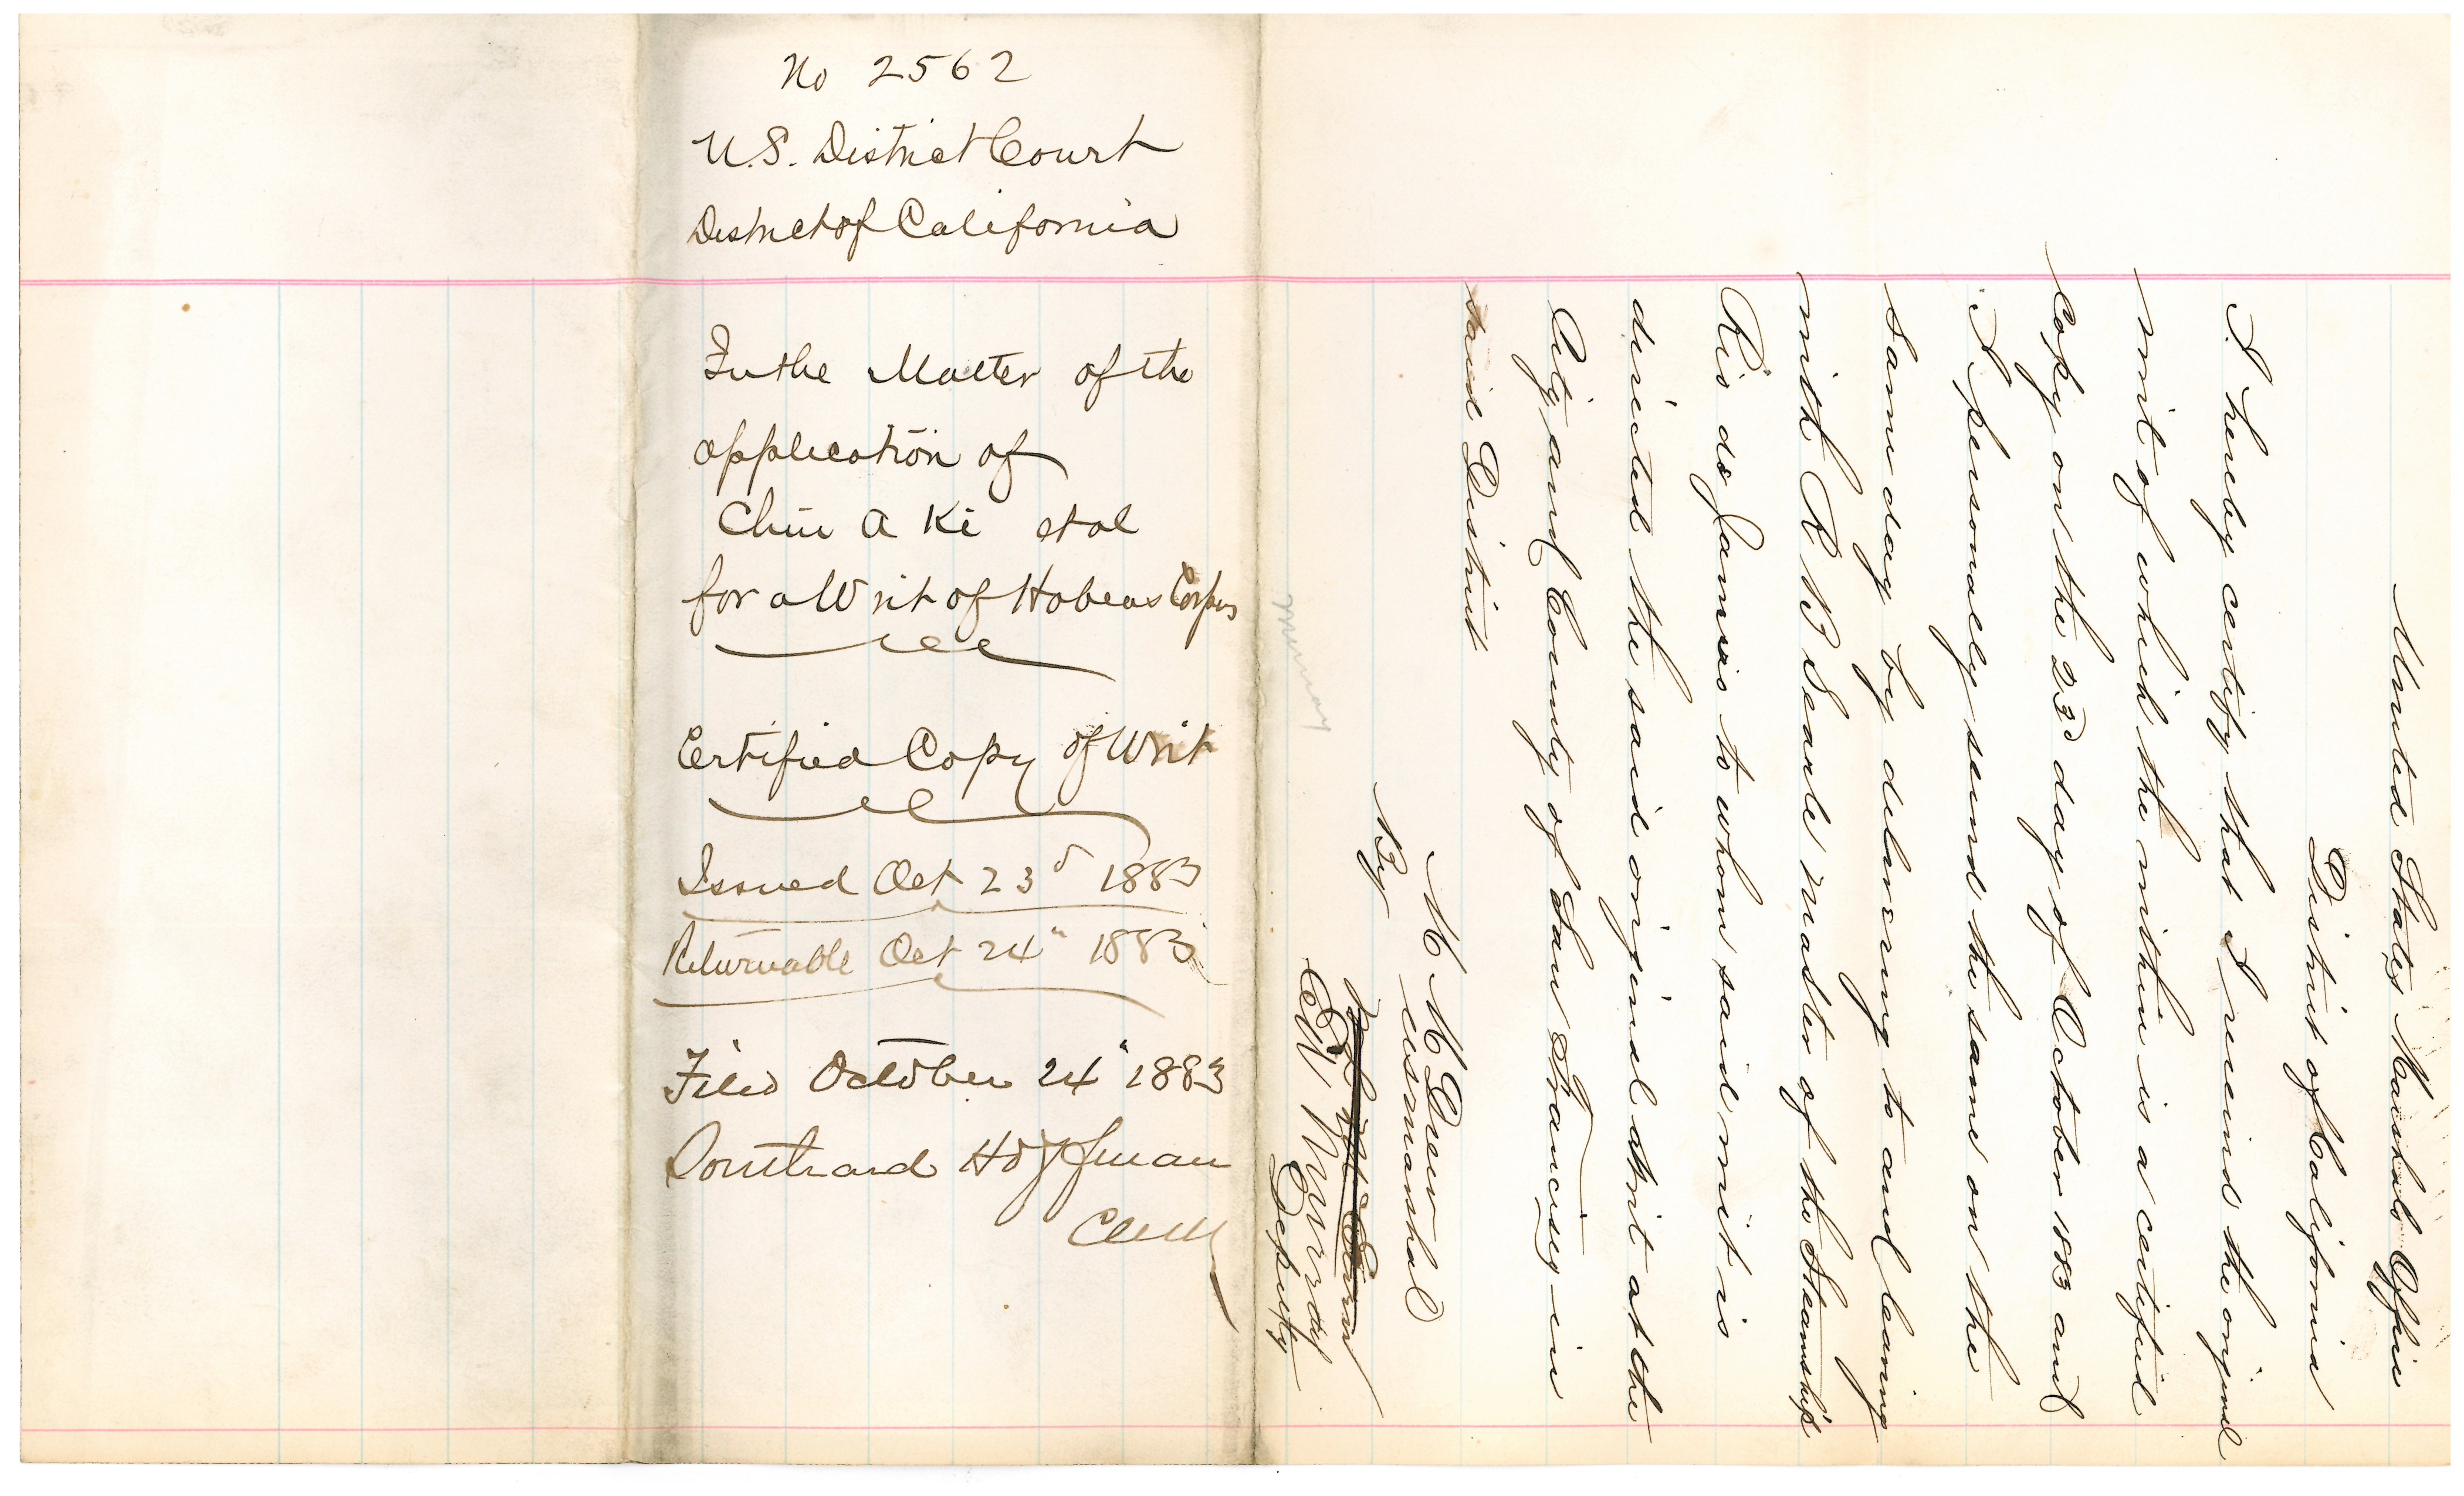 No 2562
U.S. District Court
District of California
In the Matter of the
application of
Chin A Ki et al
for a Writ of Habeas Corpus
Certified Copy of Writ
Issued Oct 23d 1883
Returnable Oct 24" 1883
Filed October 24" 1883
Southard Hoffman
Clerk
United States Marshals Office
District of California
I hereby certify that I received the original
writ of which the within is a certified
Copy on the 23d day of October 1883 and
I personally served the same on the
same day by delivering to and leaving
with R B Searle master of the Steamship
Rio de Janeiro to whom said writ is
directed the said original writ at the
City and County of San Francisco in
said District
M M Drew
US Marshal
By
E W Murray
Deputy